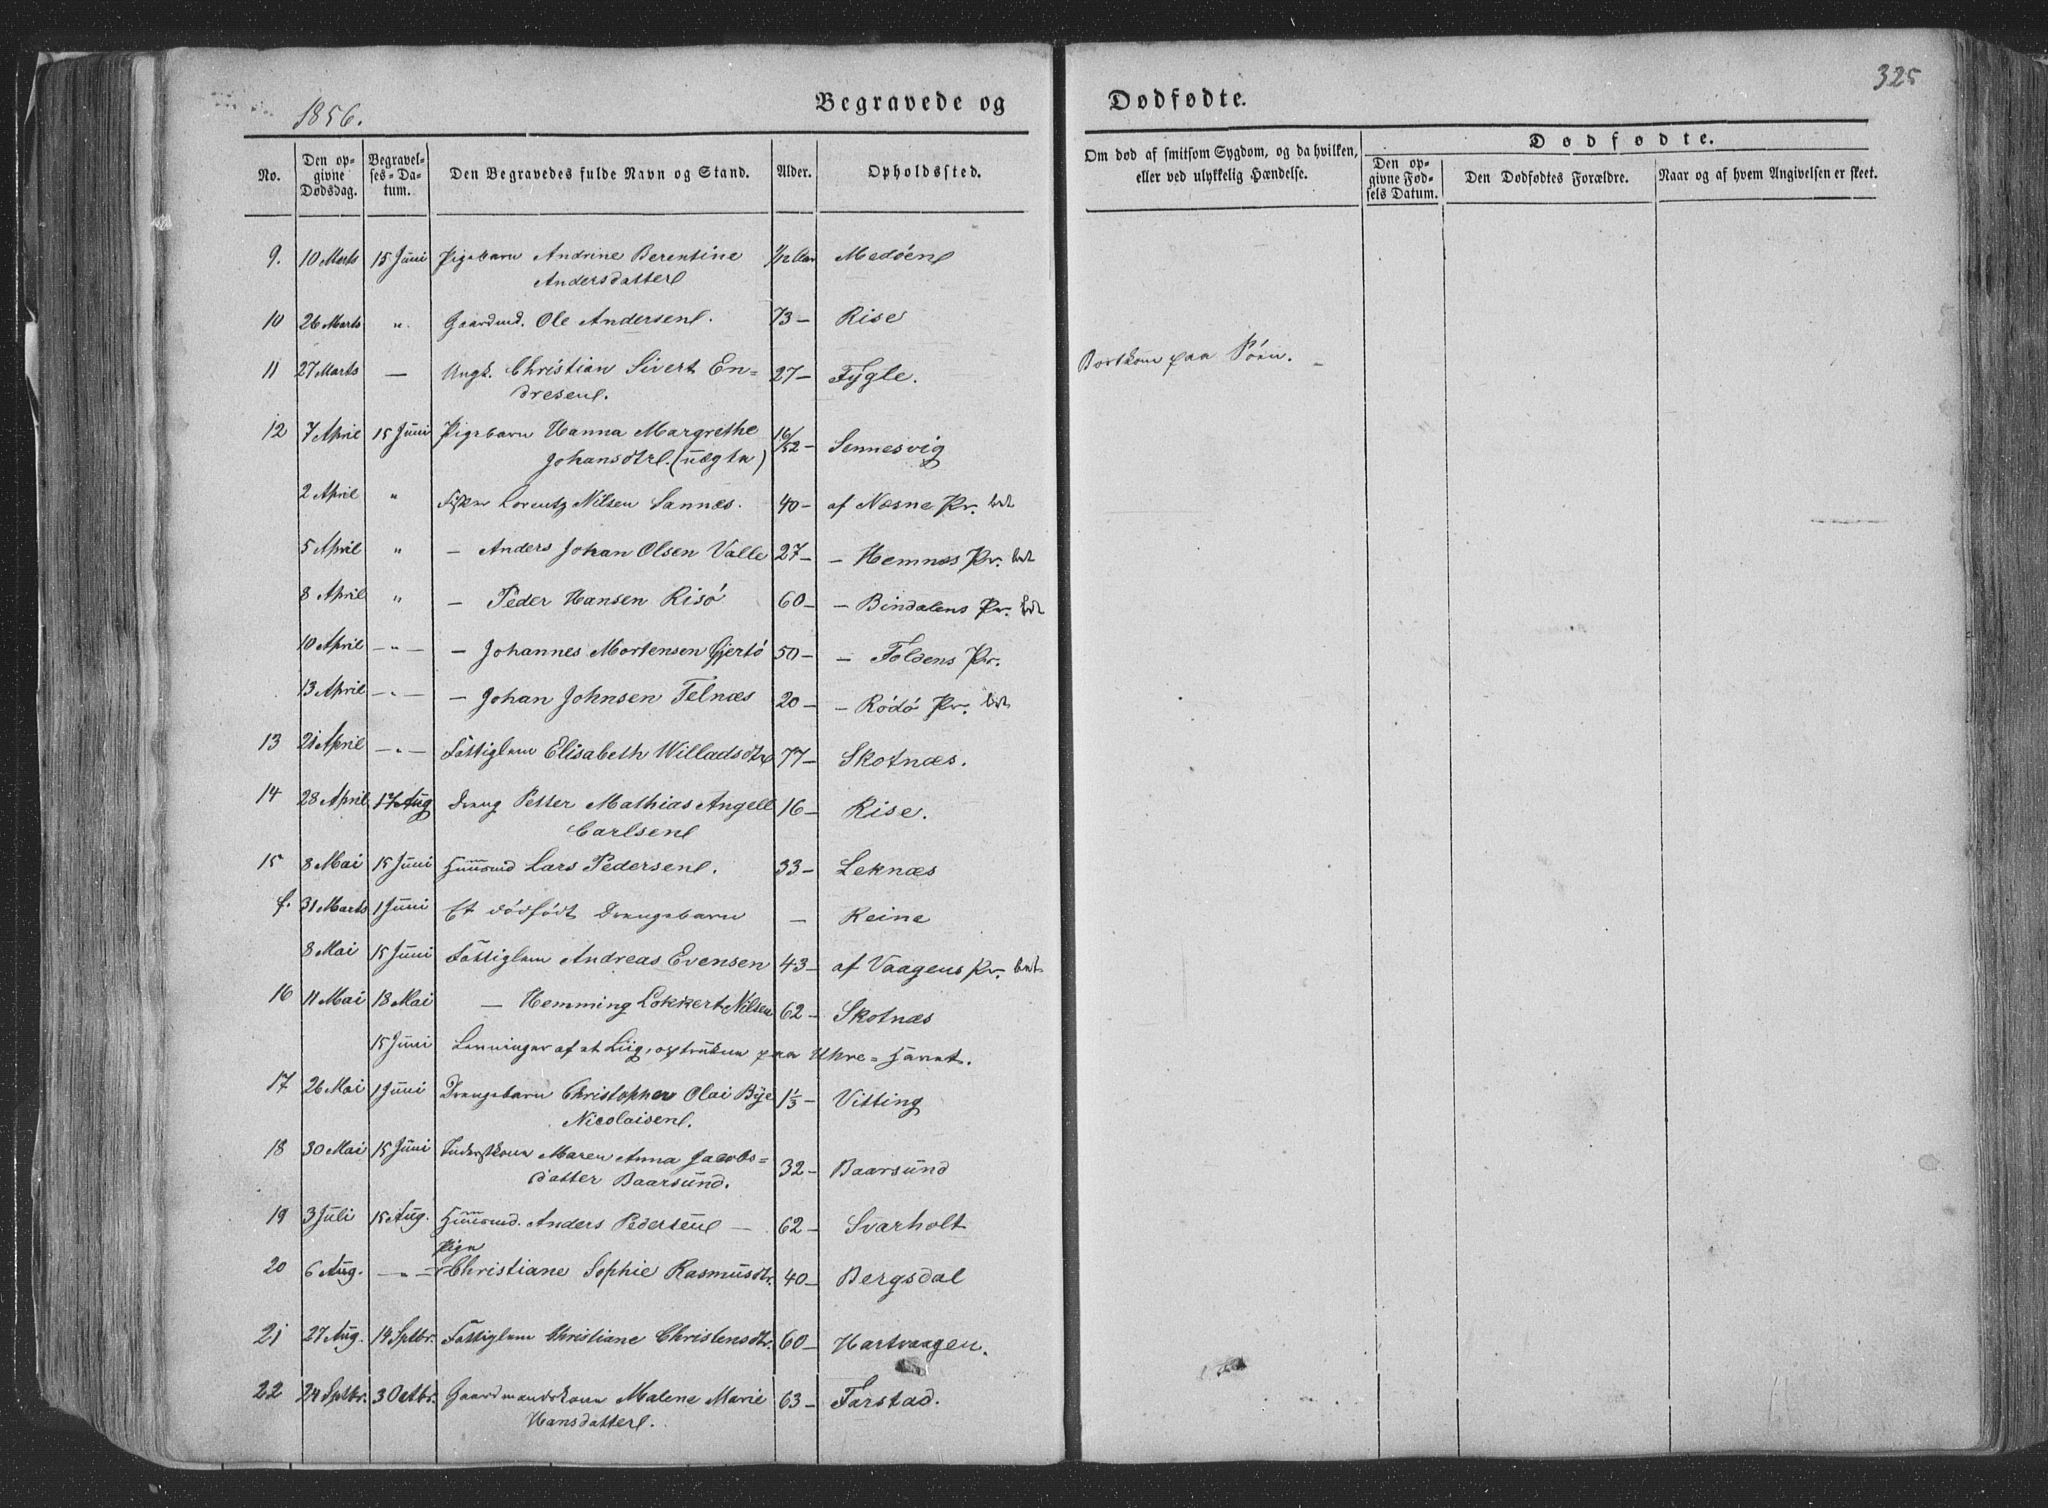 1856.
Begravede og
Dødfødte.
325
No.
Den opgivne Dødsdag.
Begravelses-Datum.
Den Begravedes fulde Navn og Stand.
Alder.
Opholdssted.
Om død af smitsom Sygdom, og da hvilken, eller ved ulykkelig Hændelse.
Dødfødte.
Den opgivne Fødsels Datum.
Den Dødfødtes Forældre.
Naar og af hvem Angivelsen er skeet.
9. 10 Marts 15 Juni Pigebarn Andrine Berentine 1/12 Aar Medøen
Andersdatter
10 26 Marts " Gaardmd. Ole Andersen. 73 - Rise
11 27 Marts — Ungk. Christian Sivert En= 27 - Fygle. Bortkom paa Søen.
dresen.
12 7 April 15 Juni Pigebarn Hanna Margrethe 16/52 - Sennesvig
Johansdtr. (uægte)
2 April " Fisker Lorentz Nilsen Sannes. 40 - af Næsne Pr.
5 April " — Anders Johan Olsen Valle 27 - — Hemnæs Pr.
8 April " — Peder Hansen Risö 60 - — Bindalens Pr.
10 April — " — — Johannes Mortensen Gjertö 50 - — Foldens Pr.
13 April — " — — Johan Johnsen Telnæs 20 - — Rödö Pr.
13 21 April — " — Fattiglem Elisabeth Willadsdtr 77 - Skotnæs.
14 28 April 17 Aug Dreng Petter Mathias Angell 16 - Rise.
Carlsen
15 8 Mai 15 Juni Huusmd Lars Pedersen. 33 - Leknæs
f. 31 Marts 1 Juni Et dödfödt Drengebarn — Reine
8 Mai 15 Juni Fattiglem Andreas Evensen 43 - af Vaagens Pr.
16 11 Mai 18 Mai — Hemming Lokkert Nilsen 62 - Skotnæs
15 Juni Levninger af et Liig, optrukne paa Uhre=Havet.
17 26 Mai 1 Juni Drengebarn Christopher Olai Bye 1 1/3 - Vitting
Nicolaisen.
18 30 Mai 15 Juni Inderstkone Maren Anna Jacobs= 32 - Baarsund
datter Baarsund.
19 3 Juli 15 Aug. Huusmd. Anders Pedersen — 62 - Svarholt
Pige
20 6 Aug. — " — Christiane Sophie Rasmusdtr. 40 - Bergsdal
21 27 Aug. 14 Sptbr. Fattiglem Christiane Christensdtr. 60 - Hartvaagen.
22 24 Sptbr. 3 Octbr. Gaardmandskone Malene Marie 63 - Farstad.
Hansdatter.